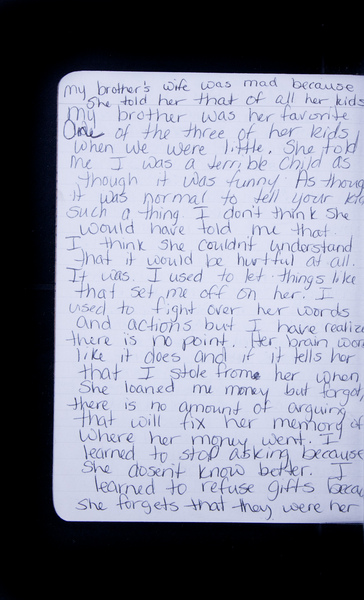 my brother's wife was mad because
she told her that of all her kids
my brother was her favorite
One of the three of her kids
when we were little. She told
me I was a terrible child as
though it was funny. As thoug
it was normal to tell your kid
such a thing. I don't think she
would have told me that
I think she couldn't understand
that it would be hurtful at all.
It was. I used to let things like
that set me off on her. I
used to fight over her words
and actions but I have realize
there is no point. Her brain wor
like it does and if it tells her
that I stole from her when
she loaned me money but forgot,
there is no amount of arguing
that will fix her memory of
where her money went. I
learned to stop asking because
she dosen't know better. I
learned to refuse gifts becau
she forgets that they were her